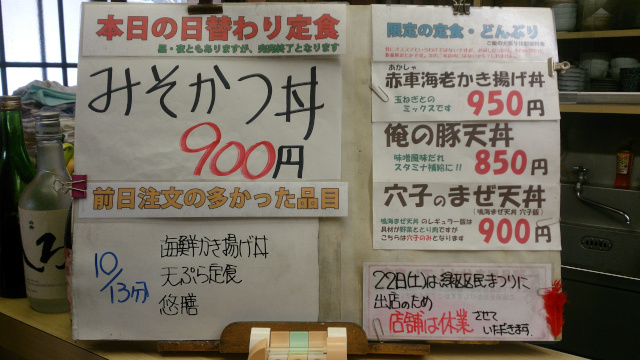 本日の日替わり定食
昼・夜ともありますが、完売終了となります
みそかつ丼
900円
前日注文の多かった品目
10/13分
海鮮かき揚げ丼
天ぷら定食
悠膳
限定の定食・どんぶり
あかしゃ
赤車海老かき揚げ丼
玉ねぎとの
ミックスです
950円
俺の豚天丼
味噌風味だれ
スタミナ補給に!!
850円
穴子のまぜ天丼
(鳴海まぜ天丼 穴子版)
鳴海まぜ天丼 のレギュラー版は
具材が野菜ととり肉ですが
こちらは穴子のみとなります
900円
22日(土)は緑区区民まつりに
出店のため
店舗は休業させて
いただきます。